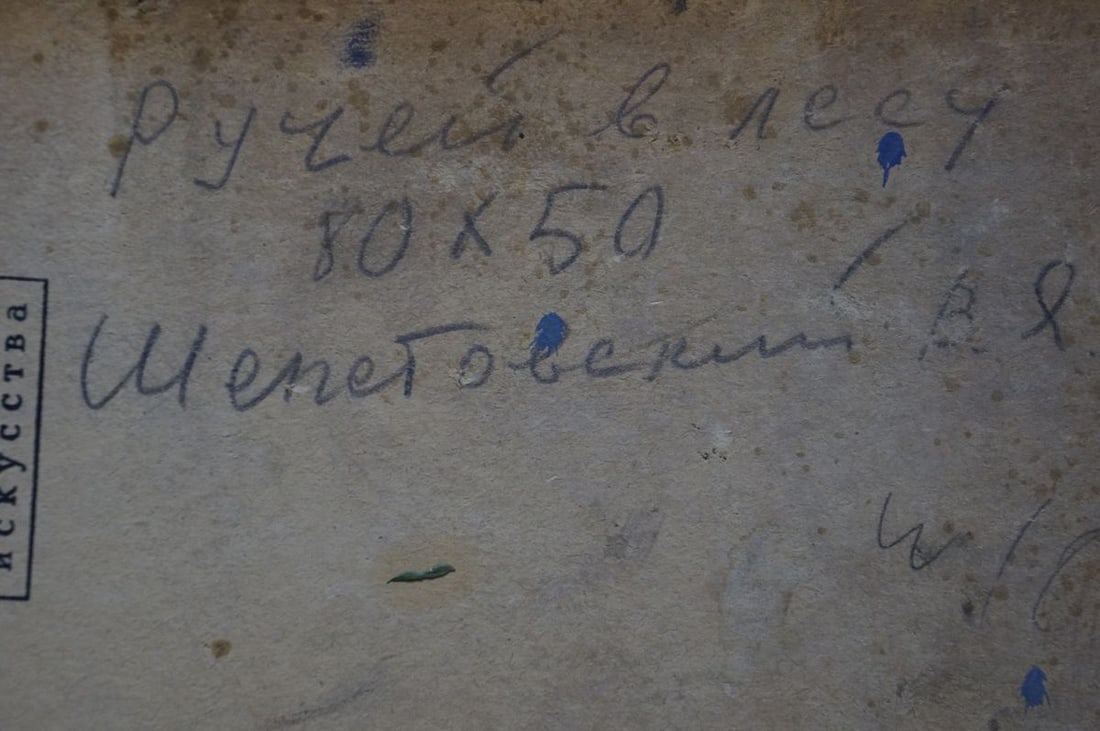 Ручей в лесу
80 х 50
Шепетовский В Я.
искусства